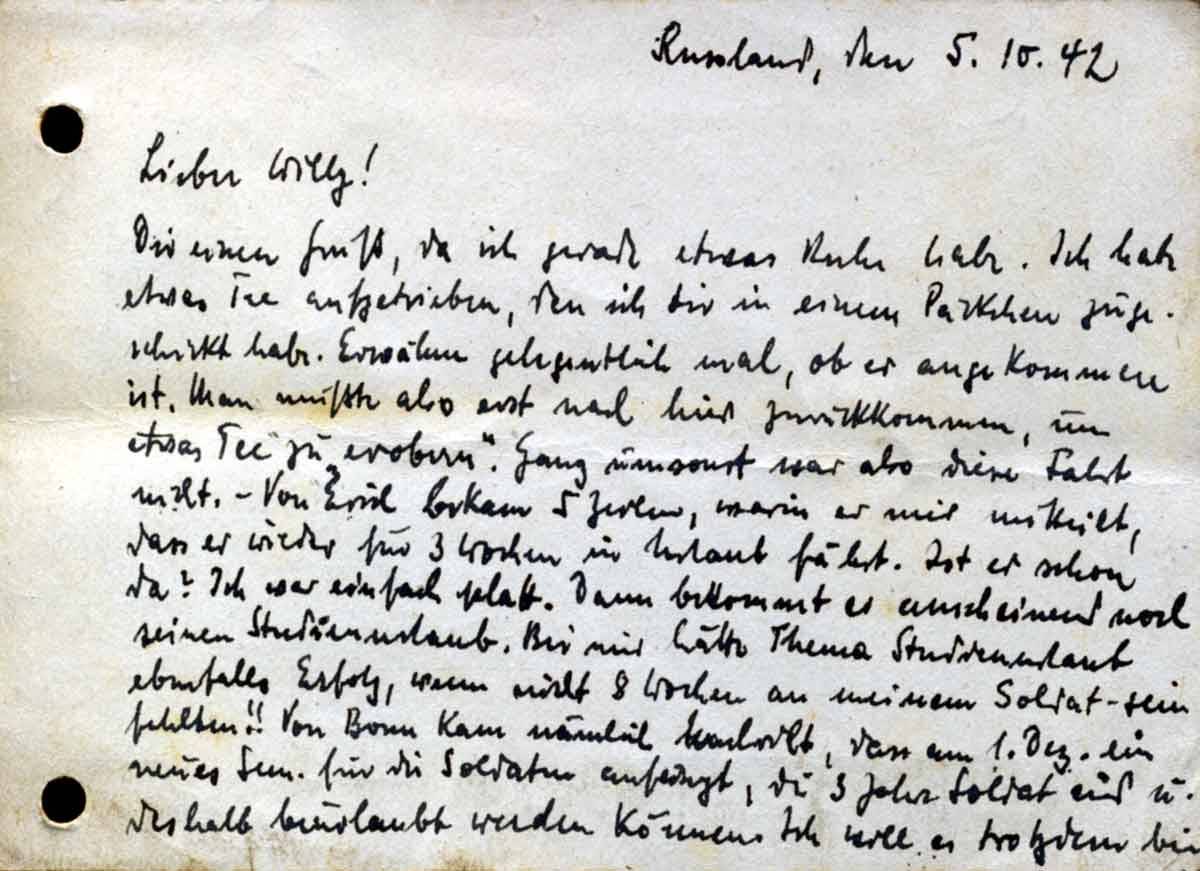 Russland, den 5. 10. 42
Lieber Willy!
Dir einen Gruß, da ich gerade etwas Ruhe habe. Ich habe
etwas Tee aufgetrieben, den ich dir in einem Päckchen zuge-
schickt habe. Erwähne gelegentlich mal, ob er angekommen
ist. Man mußte also erst nach hier zurückkommen, um
etwas Tee zu „erobern". Ganz umsonst war also diese Fahrt
nicht. - Von Erich bekam 5 Zeilen, worin er mir mitteilt,
dass er wieder für 3 Wochen in Urlaub fährt. Ist er schon
da? Ich war einfach platt. Dann bekommt er anscheinend noch
seinen Studienurlaub. Bei mir hätte Thema Studienurlaub
ebenfalls Erfolg, wenn nicht 8 Wochen an meinem Soldat-sein
fehlten!! Von Bonn kam nämlich Nachricht, dass am 1. Dez. ein
neues Sem. für die Soldaten anfängt, die 3 Jahre Soldat sind u.
deshalb beurlaubt werden können. Ich will es trotzdem bei